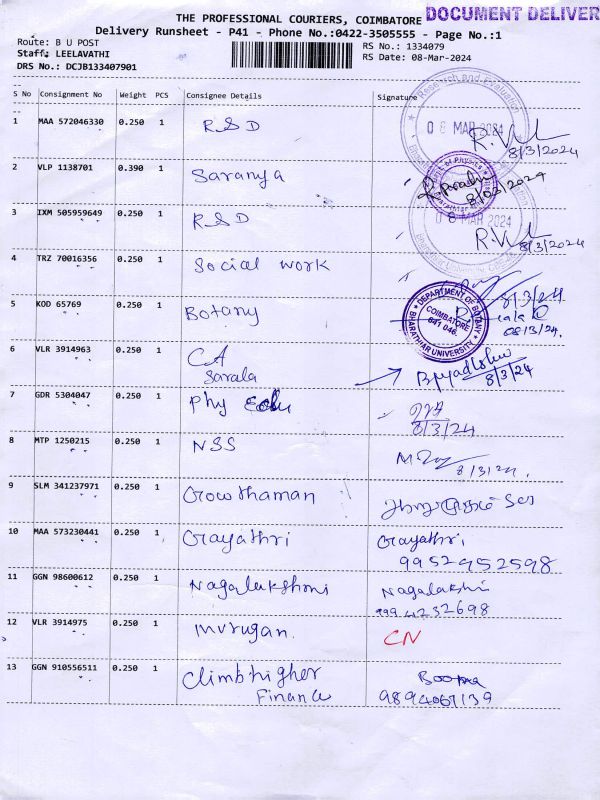 THE PROFESSIONAL COURIERS, COIMBATORE DOCUMENT DELIVER
Delivery Runsheet - P41 - Phone No.:0422-3505555 - Page No.:1
Route: B U POST
Staff: LEELAVATHI
DRS No.: DCJB133407901
RS No.: 1334079
RS Date: 08-Mar-2024
S No Consignment No Weight PCS Consignee Details Signature
1 MAA 572046330 0.250 1 RSD R.V 8/3/2024
Research and Evaluation
08 MAR 2024
2 VLP 1138701 0.390 1 Saranya 8/03/2024
Dept. of Physics
3 IXM 505959649 0.250 1 RSD R.V 8/3/2024
08 MAR 2024
4 TRZ 70016356 0.250 1 Social work 8/3/24
5 KOD 65769 0.250 1 Botany 08/3/24.
DEPARTMENT OF BOTANY
COIMBATORE
641 046.
BHARATHIAR UNIVERSITY
6 VLR 3914963 0.250 1 CA 8/3/24
Sarala
7 GDR 5304047 0.250 1 Phy Edu 8/3/24
8 MTP 1250215 0.250 1 NSS 8/3/24.
9 SLM 341237971 0.250 1 Gowthaman
10 MAA 573230441 0.250 1 Gayathri Gayathri
9952952598
11 GGN 98600612 0.250 1 Nagalakshmi Nagalakshi
9994232698
12 VLR 3914975 0.250 1 Murugan. CN
13 GGN 910556511 0.250 1 Climbhigher Boopa
Finance 9894067139